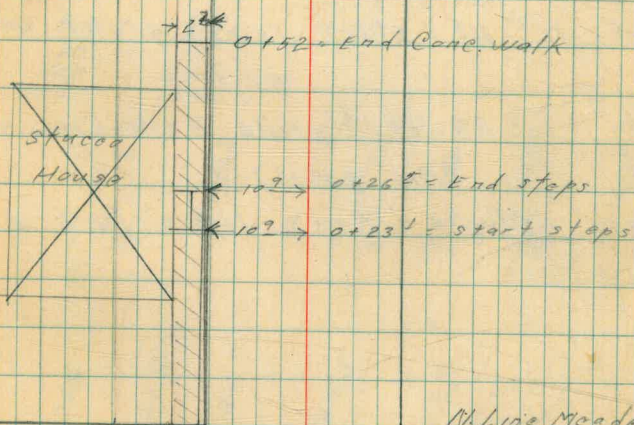 2²
0+52 = End Conc. Walk
Stucco
House
10⁹ 0+26⁵ = End steps
10⁹ 0+23¹ = start steps
N. Line Mead